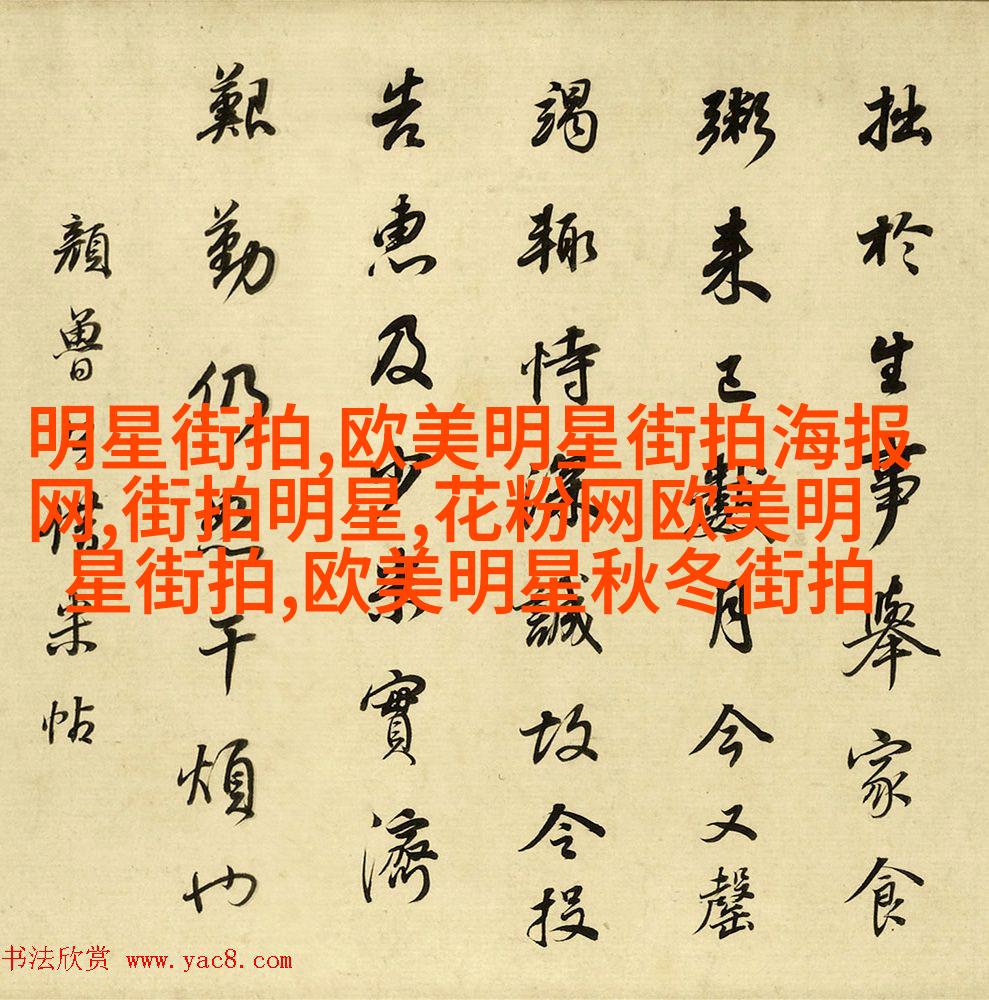 拙於生事舉家食
粥来已數月今又罄
竭輙恃深誠故令投
告惠及少米實濟
艱勤仍恕干煩也
顔魯公借米帖
明星街拍,欧美明星街拍海报
网,街拍明星,花粉网欧美明
星街拍,欧美明星秋冬街拍
书法欣赏 www.yac8.com